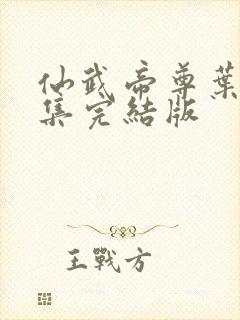 仙武帝尊葉
集完結版
王戰方